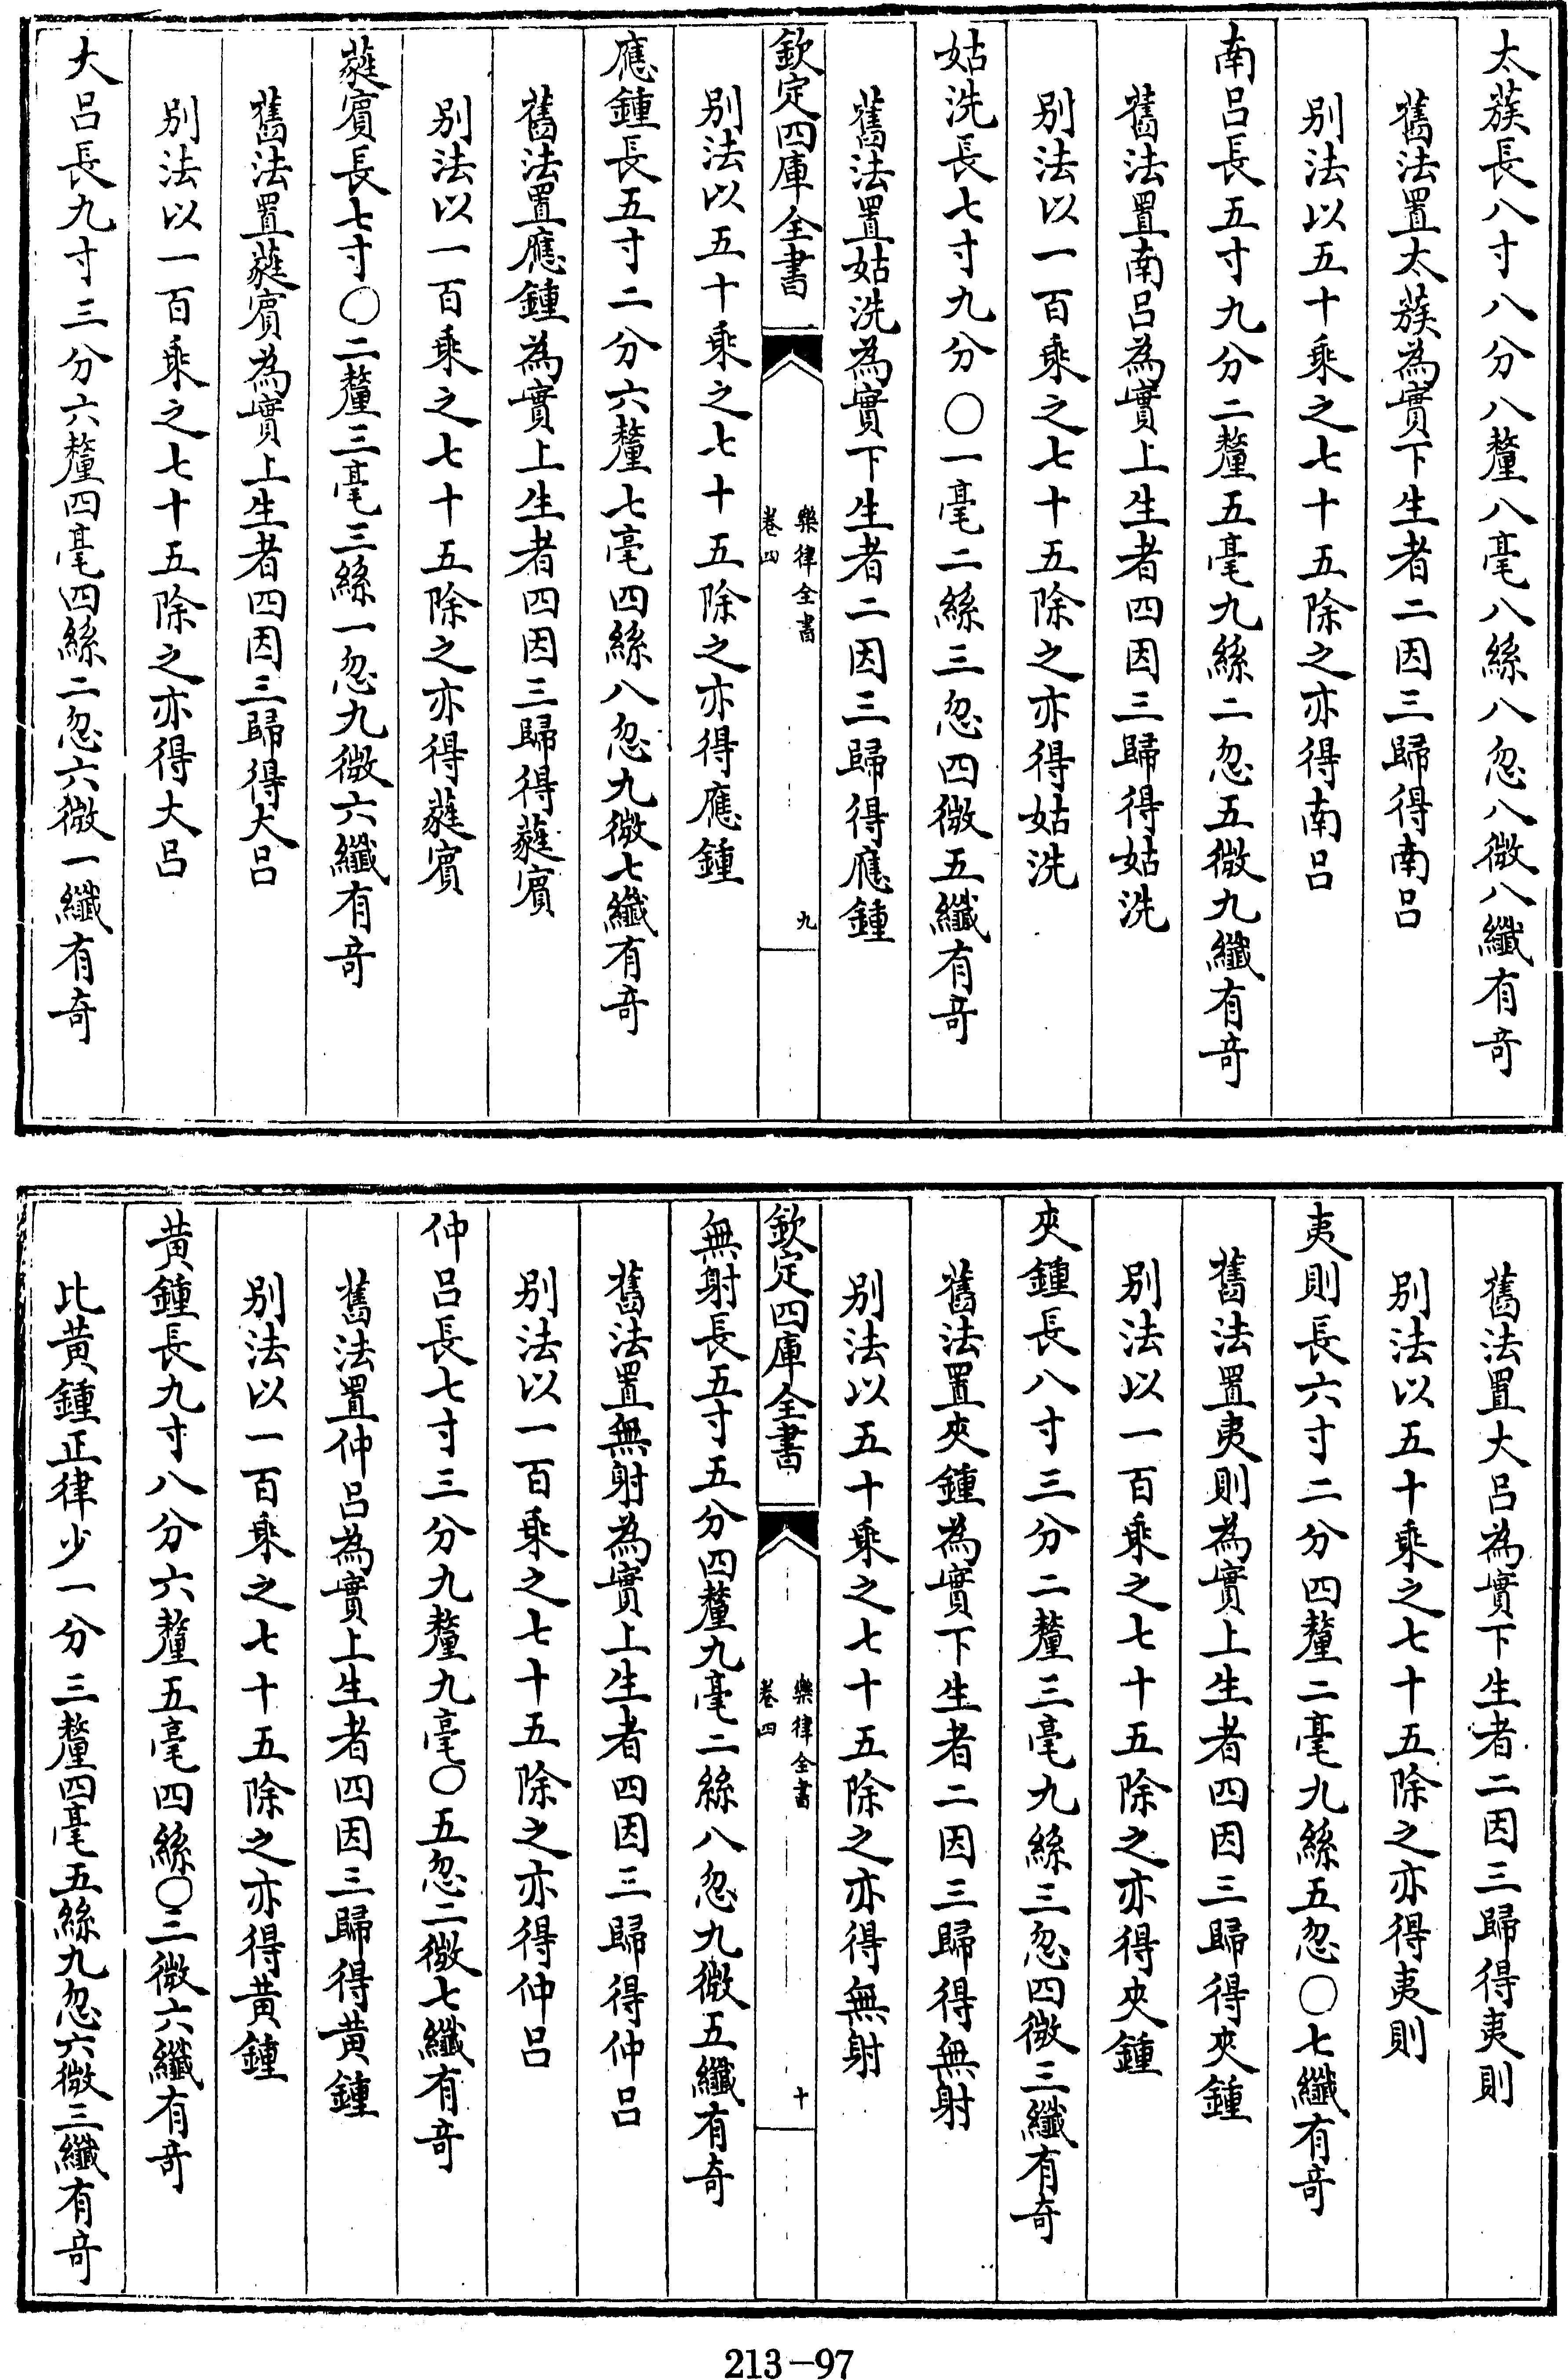 太蔟長八寸八分八釐八毫八絲八忽八微八纖有奇
舊法置太蔟為實下生者二因三歸得南呂
別法以五十乘之七十五除之亦得南呂
南呂長五寸九分二釐五毫九絲二忽五微九纖有奇
舊法置南呂為實上生者四因三歸得姑洗
別法以一百乘之七十五除之亦得姑洗
姑洗長七寸九分〇一毫二絲三忽四微五纖有奇
舊法置姑洗為實下生者二因三歸得應鍾
欽定四庫全書
樂律全書
卷四
九
別法以五十乘之七十五除之亦得應鍾
應鍾長五寸二分六釐七毫四絲八忽九微七纖有奇
舊法置應鍾為實上生者四因三歸得蕤賓
別法以一百乘之七十五除之亦得蕤賓
蕤賓長七寸〇二釐三毫三絲一忽九微六纖有奇
舊法置蕤賓為實上生者四因三歸得大呂
別法以一百乘之七十五除之亦得大呂
大呂長九寸三分六釐四毫四絲二忽六微一纖有奇
舊法置大呂為實下生者二因三歸得夷則
別法以五十乘之七十五除之亦得夷則
夷則長六寸二分四釐二毫九絲五忽〇七纖有奇
舊法置夷則為實上生者四因三歸得夾鍾
別法以一百乘之七十五除之亦得夾鍾
夾鍾長八寸三分二釐三毫九絲三忽四微三纖有奇
舊法置夾鍾為實下生者二因三歸得無射
別法以五十乘之七十五除之亦得無射
欽定四庫全書
樂律全書
卷四
十
無射長五寸五分四釐九毫二絲八忽九微五纖有奇
舊法置無射為實上生者四因三歸得仲呂
別法以一百乘之七十五除之亦得仲呂
仲呂長七寸三分九釐九毫〇五忽二微七纖有奇
舊法置仲呂為實上生者四因三歸得黃鍾
別法以一百乘之七十五除之亦得黃鍾
黃鍾長九寸八分六釐五毫四絲〇三微六纖有奇
比黃鍾正律少一分三釐四毫五絲九忽六微三纖有奇
213-97